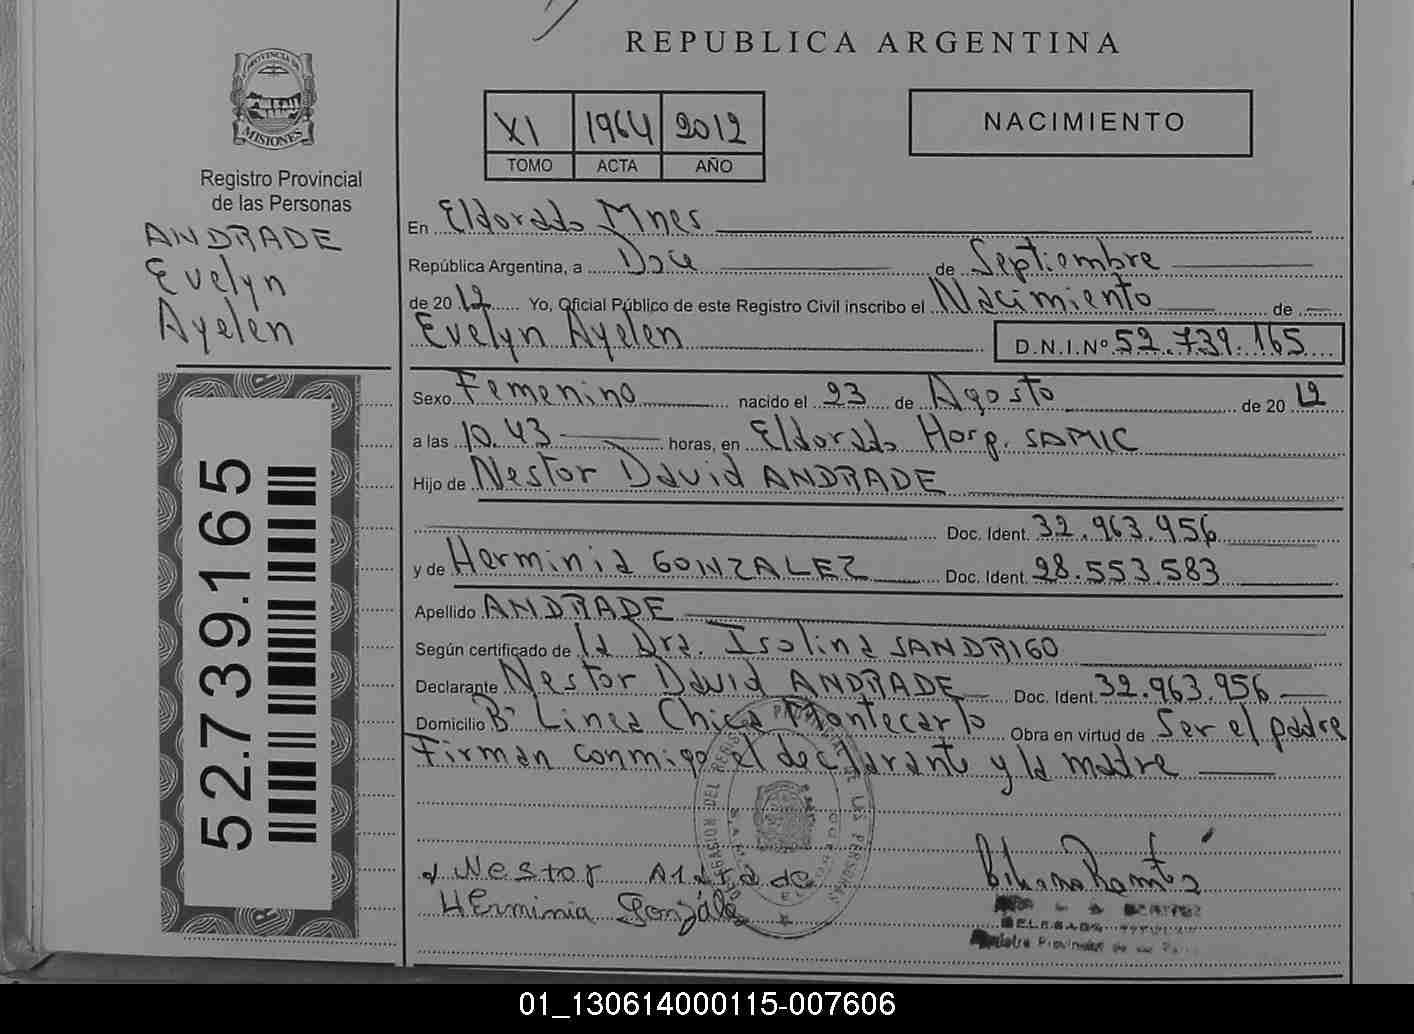 REPUBLICA ARGENTINA
PROVINCIA DE
MISIONES
Registro Provincial
de las Personas
ANDRADE
Evelyn
Ayelen
52.739.165
XI 1964 2012
TOMO ACTA AÑO
NACIMIENTO
En Eldorado Mnes
República Argentina, a Doce de Septiembre
de 2012 Yo, Oficial Público de este Registro Civil inscribo el Nacimiento de
Evelyn Ayelen D.N.I.Nº 52.739.165
Sexo Femenino nacido el 23 de Agosto de 2012
a las 10.43 horas, en Eldorado Hosp. SAMIC
Hijo de Nestor David ANDRADE
Doc. Ident. 32.963.956
y de Herminia GONZALEZ Doc. Ident. 28.553.583
Apellido ANDRADE
Según certificado de la Dra. Isolina SANDRIGO
Declarante Nestor David ANDRADE Doc. Ident. 32.963.956
Domicilio Bº Linea Chica Montecarlo Obra en virtud de Ser el padre
Firman conmigo el declarante y la madre
Nestor
Herminia González
01_130614000115-007606